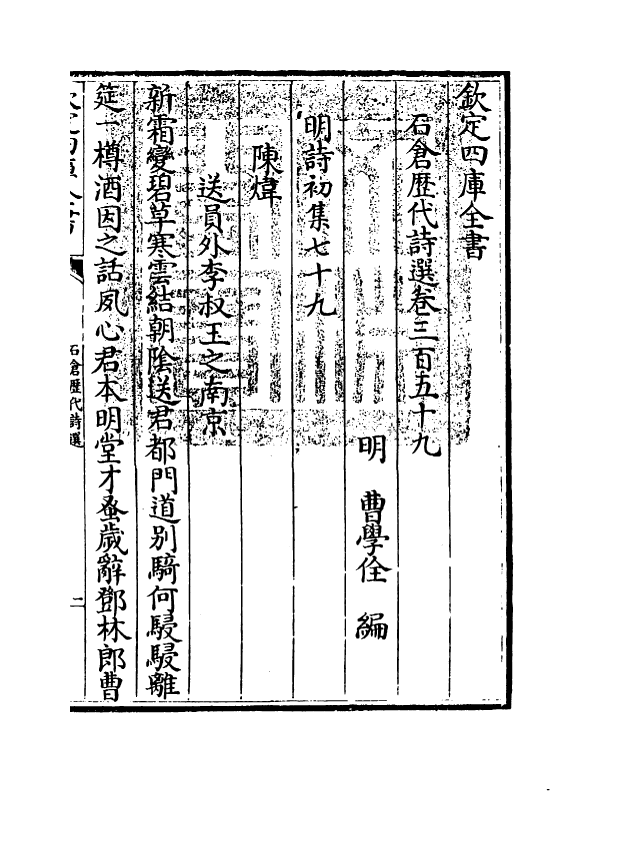 欽定四庫全書
石倉歴代詩選卷三百五十九
明　曹學佺　編
明詩初集七十九
陳煒
送員外李叔王之南京
新霜變碧草寒雲結朝陰送君都門道别騎何駸駸離
筵一樽酒因之話夙心君本明堂才蚤歲辭鄧林郎曹
欽定四庫全書
石倉歷代詩選